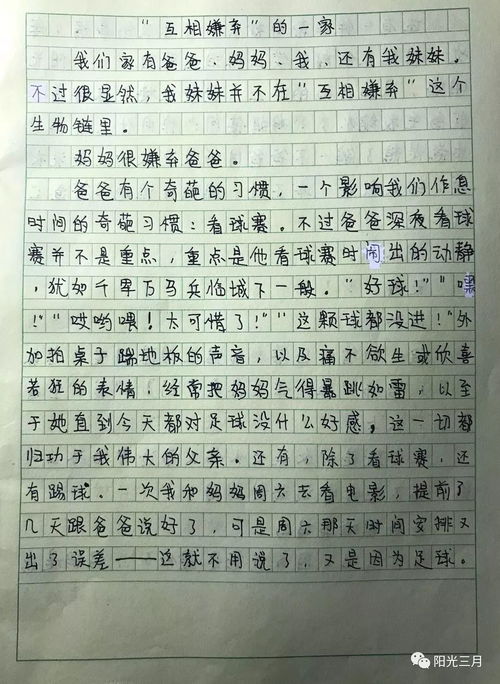 “互相嫌弃”的一家
我们家有爸爸、妈妈、我、还有我妹妹。
不过很显然，我妹妹并不在“互相嫌弃”这个
生物链里。
妈妈很嫌弃爸爸。
爸爸有个奇葩的习惯，一个影响我们作息
时间的奇葩习惯：看球赛。不过爸爸深夜看球
赛并不是重点，重点是他看球赛时闹出的动静
，犹如千军万马兵临城下一段。“好球！”“嘿
！”“哎哟喂！太可惜了！”“这颗球都没进！”外
加拍桌子踹地板的声音，以及痛不欲生或欣喜
若狂的表情，经常把妈妈气得暴跳如雷，以至
于她直到今天都对足球没什么好感，这一切都
归功于我伟大的父亲。还有，除了看球赛，还
有踢球。一次我和妈妈周六去看电影，提前了
几天跟爸爸说好了，可是周六那天时间安排又
出了误差——这就不用说了，又是因为足球。
阳光三月